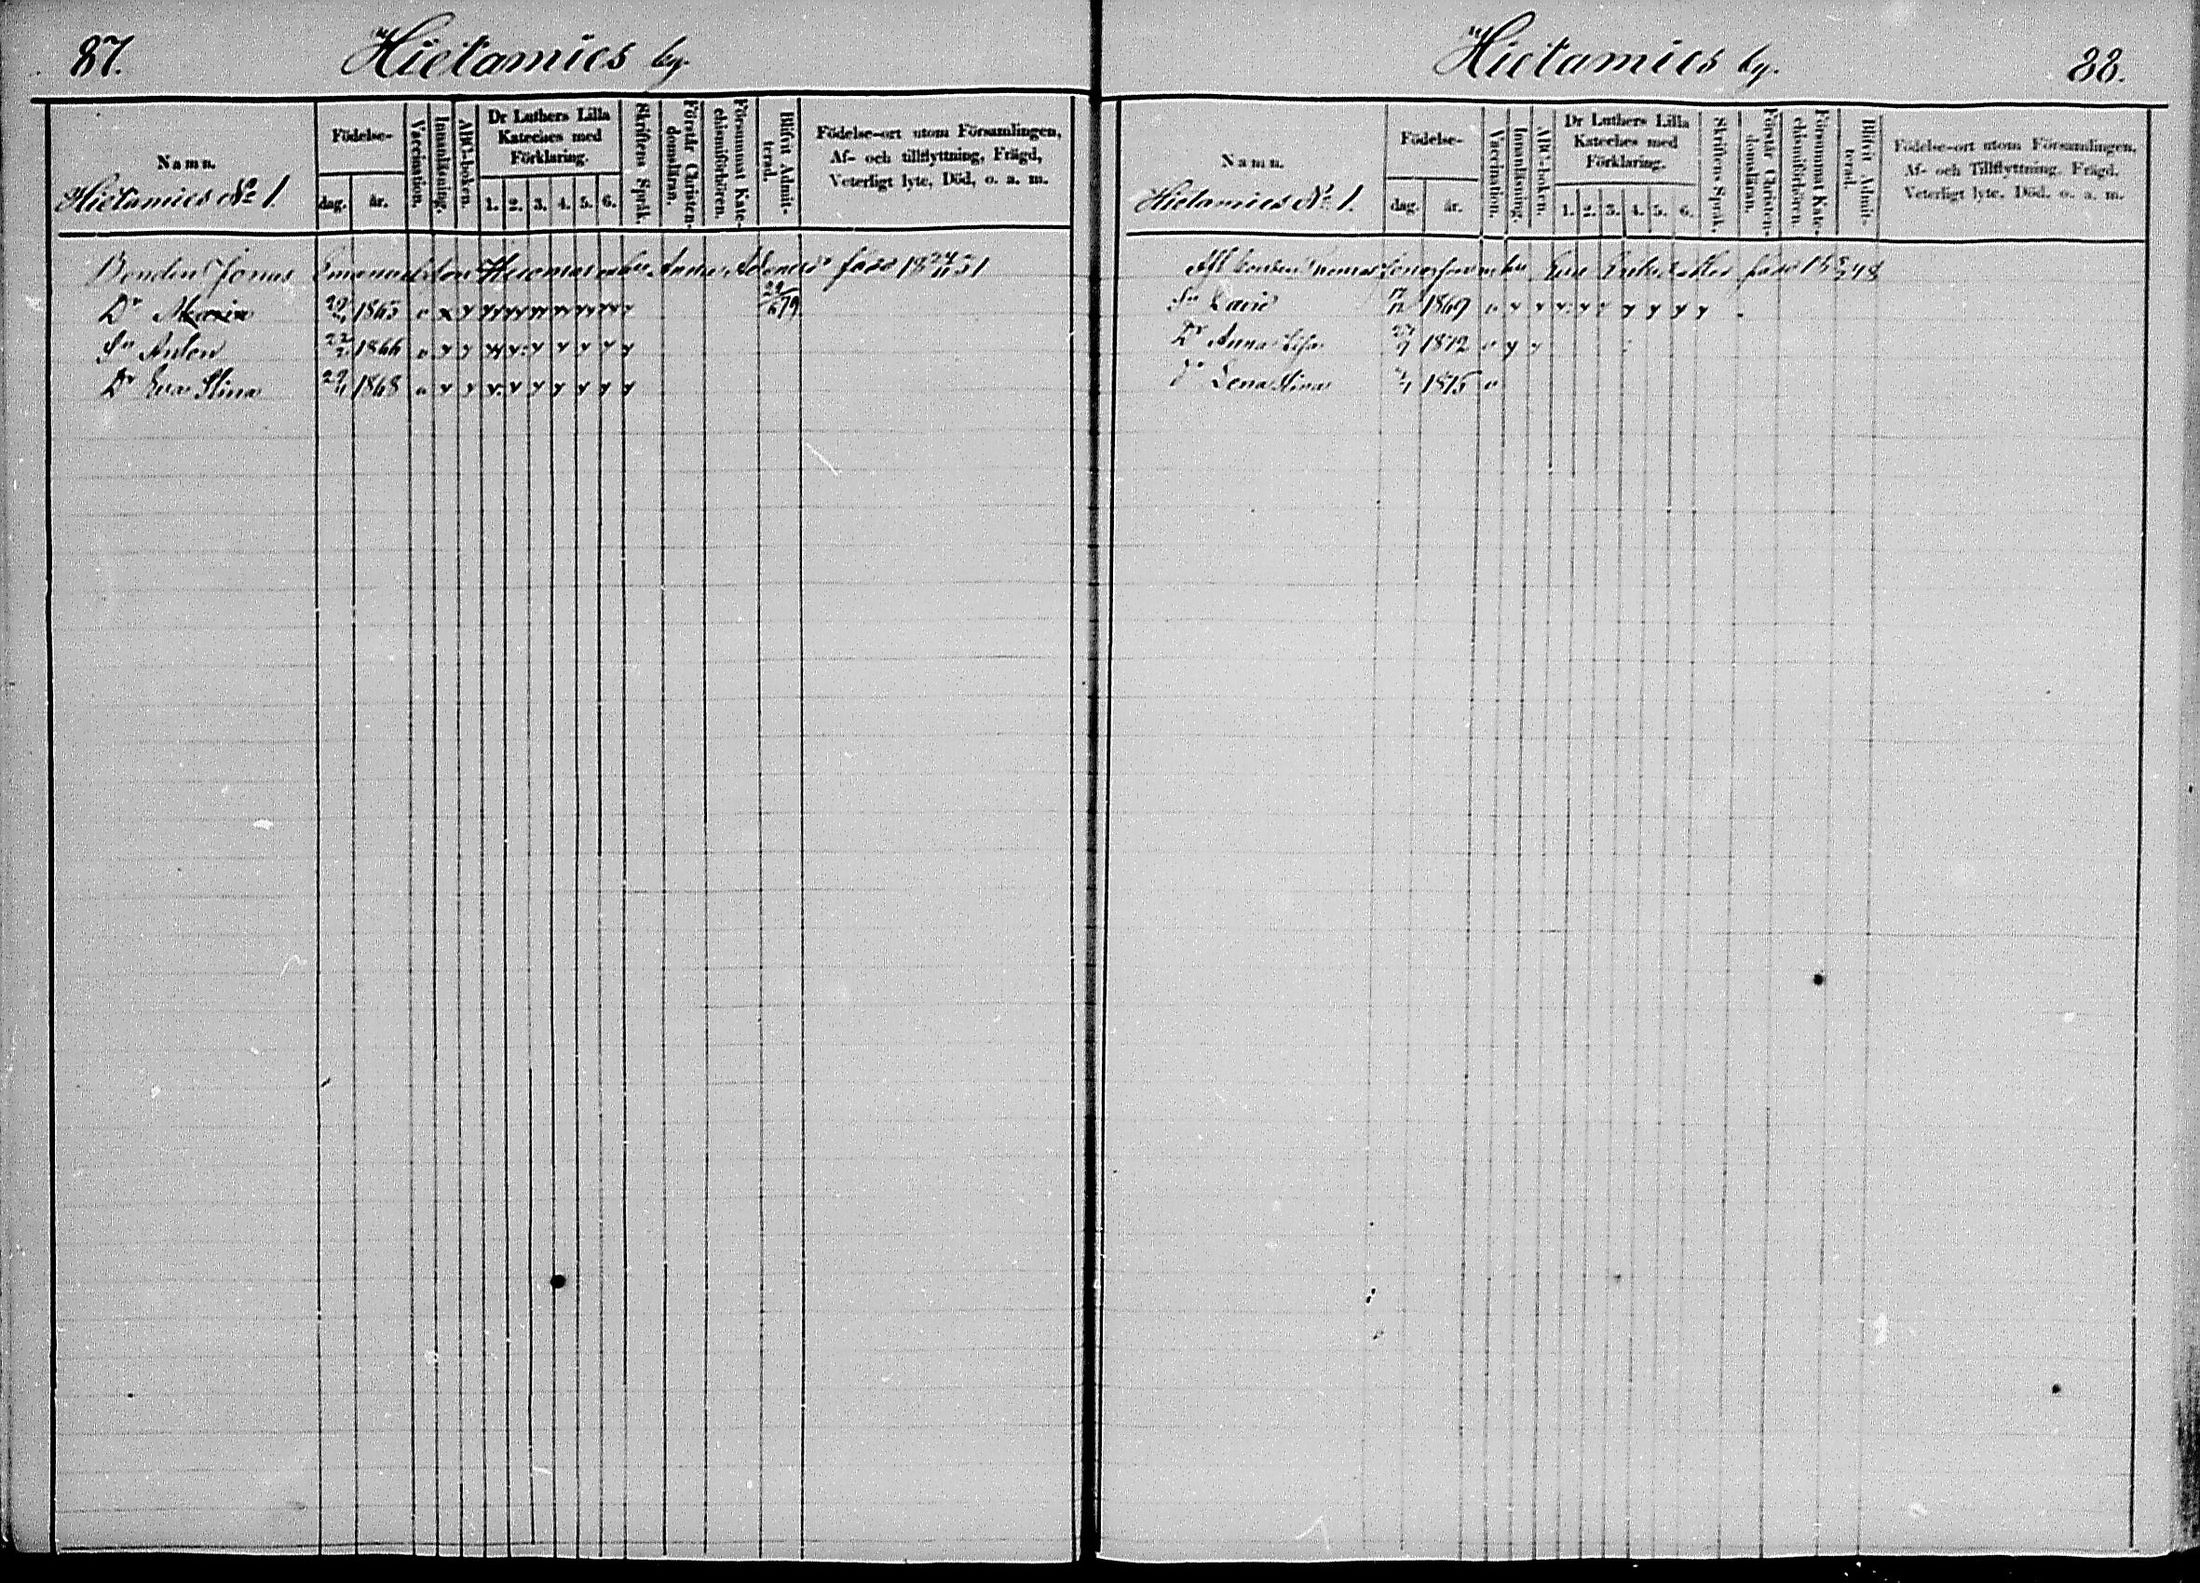 87.
Hietamies by.
Namn.
Hietamies No 1.
Födelse-
dag.
år.
Vaccination.
Innanläsning.
ABC-boken.
Dr Luthers Lilla
Kateches med
Förklaring.
1. 2. 3. 4. 5. 6.
Skriftens Språk.
Förstår Christen-
domsläran.
Försummat Kate-
chismiförhören.
Blifvit Admit-
terad.
Födelse-ort utom Församlingen,
Af- och tillflyttning, Frägd,
Veterligt lyte, Död, o. a. m.
Bonden Jonas Emanuelson Hietamies Anna
Dr Maria 1865
Sn Anton 1866
Dr Eva Stina 1868
Hietamies by.
88.
Namn.
Hietamies No 1.
Födelse-
dag.
år.
Vaccination.
Innanläsning.
ABC-boken.
Dr Luthers Lilla
Kateches med
Förklaring.
1. 2. 3. 4. 5. 6.
Skriftens Språk.
Förstår Christen-
domsläran.
Försummat Kate-
chismiförhören.
Blifvit Admit-
terad.
Födelse-ort utom Församlingen,
Af- och Tillflyttning, Frägd,
Veterligt lyte, Död, o. a. m.
Eva
Sn 1869
Dr Anna Lisa 1872
Dr Lena Stina 1875